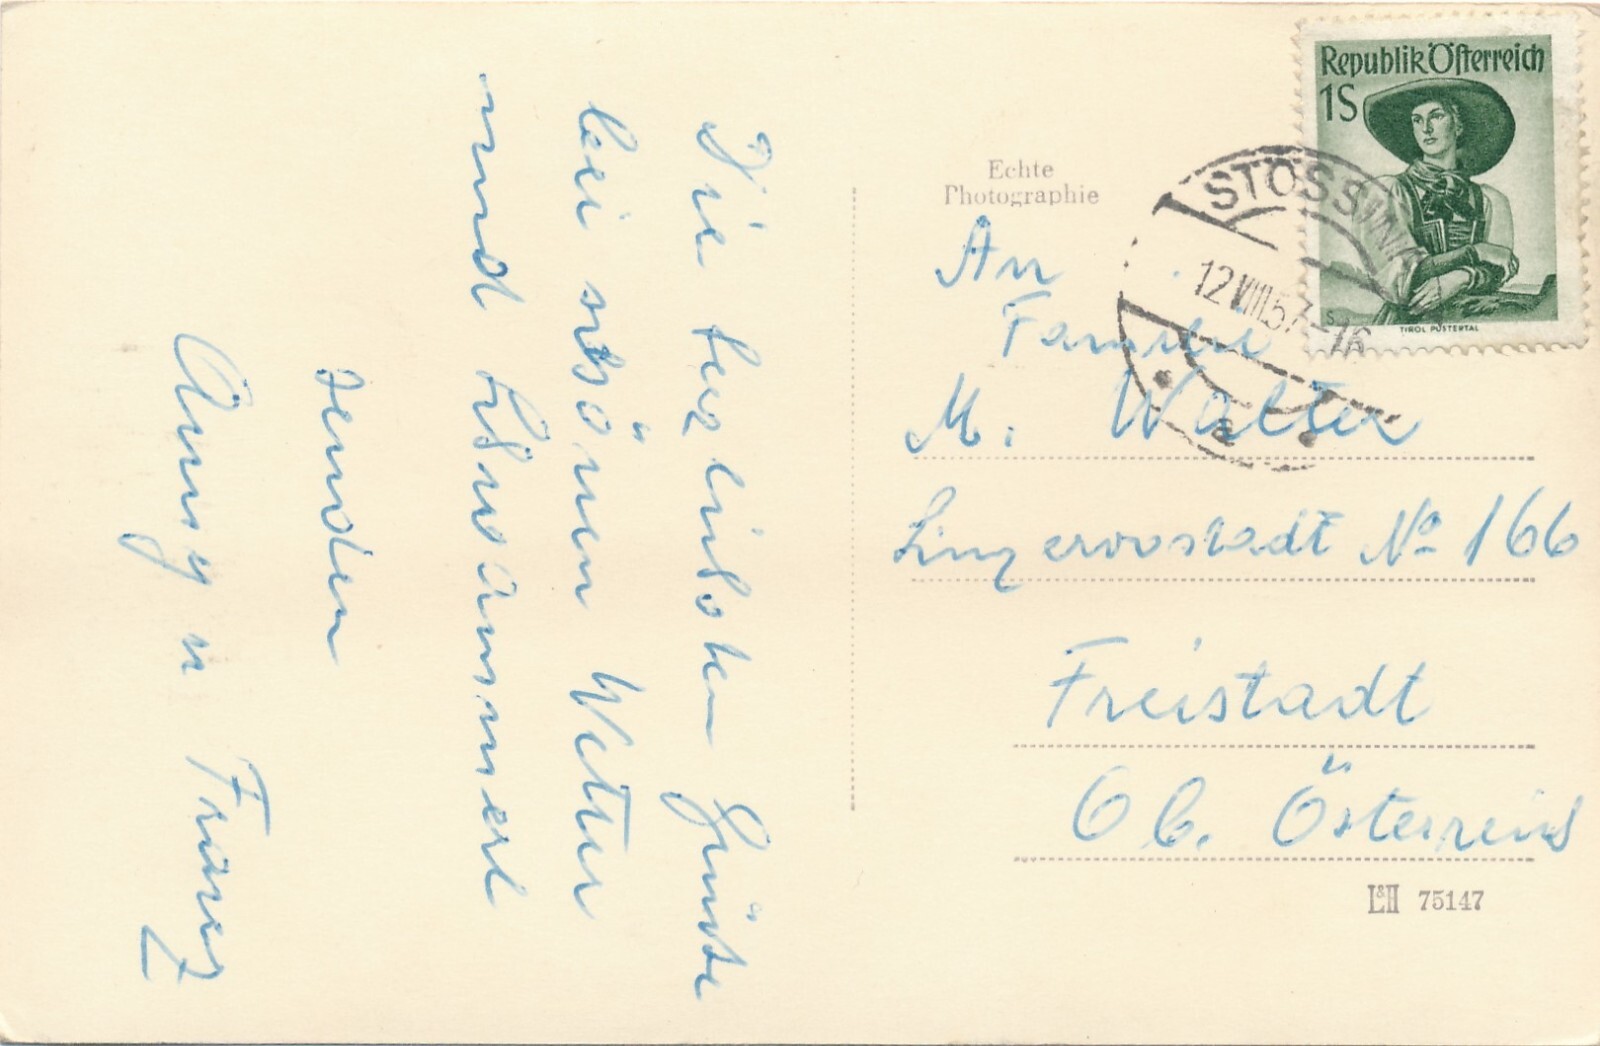 Die herzlichsten Grüße
bei schönem Wetter
und Schwammerl
senden
Anny u Franz
Echte
Photographie
An
Familie
M. Walter
Linzervorstadt No 166
Freistadt
Ob. Österreich
L&H 75147
Republik Österreich
1S
TIROL PUSTERTAL
12.VIII.57-16
a